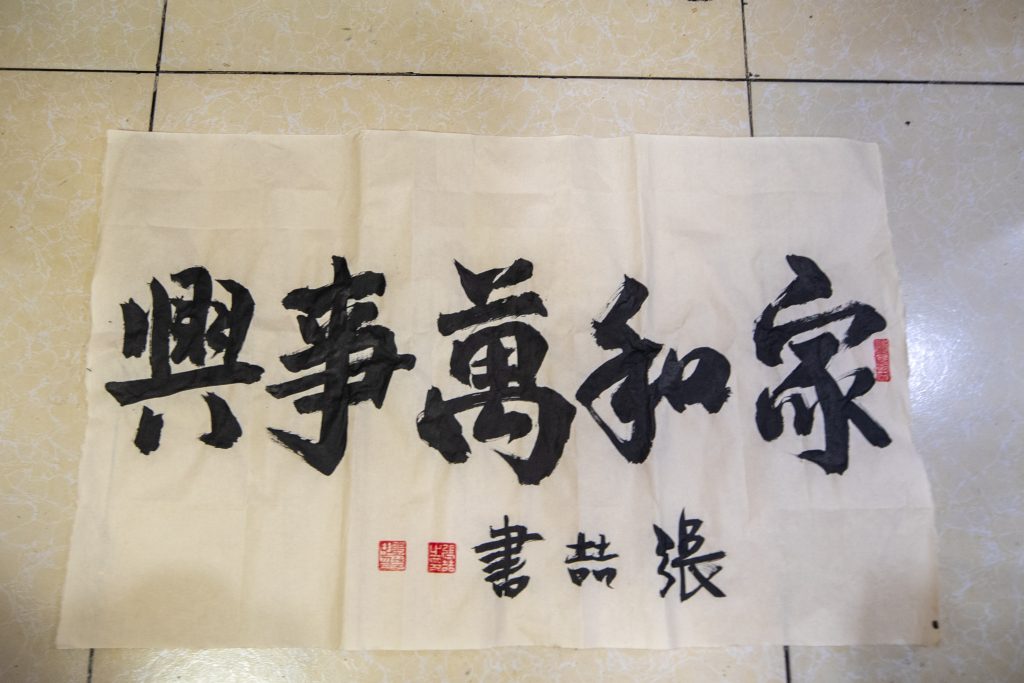 家和萬事興
張喆書